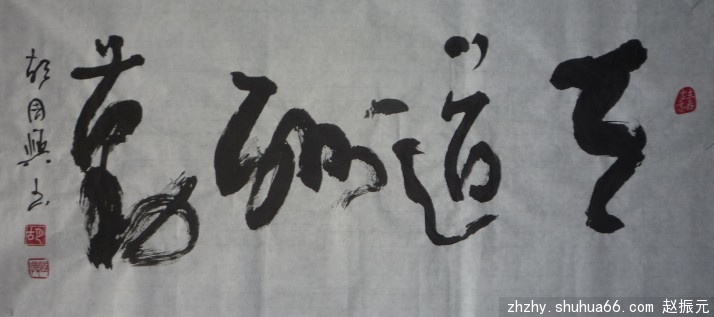 天道酬勤
胡国兴书
zhzhy.shuhua66.com 赵振元